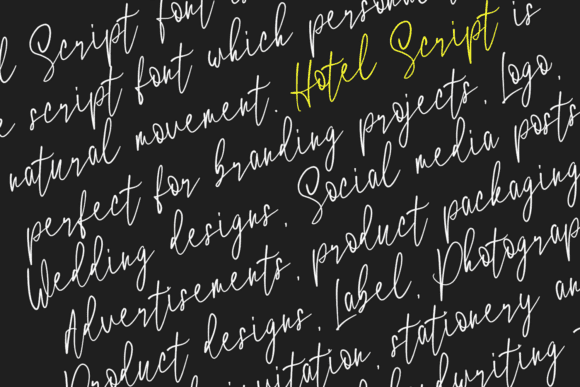 Script font
script font which
natural movement. Hotel Script is
perfect for branding projects, Logo,
Wedding designs, Social media posts
Advertisements, product packaging
Product designs, Label,
invitation, stationery